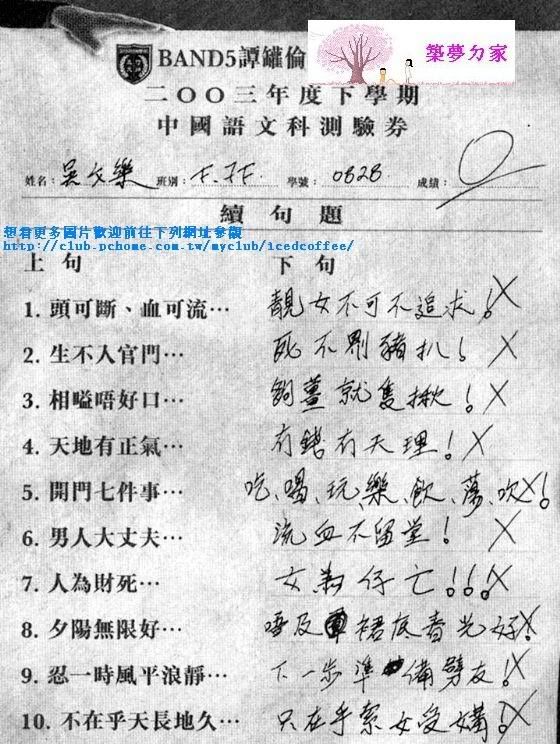 BAND5譚罐倫
築夢ㄉ家
二〇〇三年度下學期
中國語文科測驗券
姓名：吳文樂 班別：F.7F. 學號：0828 成績：0
續句題
想看更多圖片歡迎前往下列網址參觀
http://club.pchome.com.tw/myclub/icedcoffee/
上句 下句
1. 頭可斷、血可流… 靚女不可不追求！X
2. 生不入官門… 死不㓥豬扒！X
3. 相嗌唔好口… 夠薑就隻揪！X
4. 天地有正氣… 有錢有天理！X
5. 開門七件事… 吃、喝、玩、樂、飲、蕩、吹！X
6. 男人大丈夫… 流血不留堂！X
7. 人為財死… 女為仔亡！！！X
8. 夕陽無限好… 唔及裙底春光好！X
9. 忍一時風平浪靜… 下一步準備劈友！X
10. 不在乎天長地久… 只在乎索女受媾！X